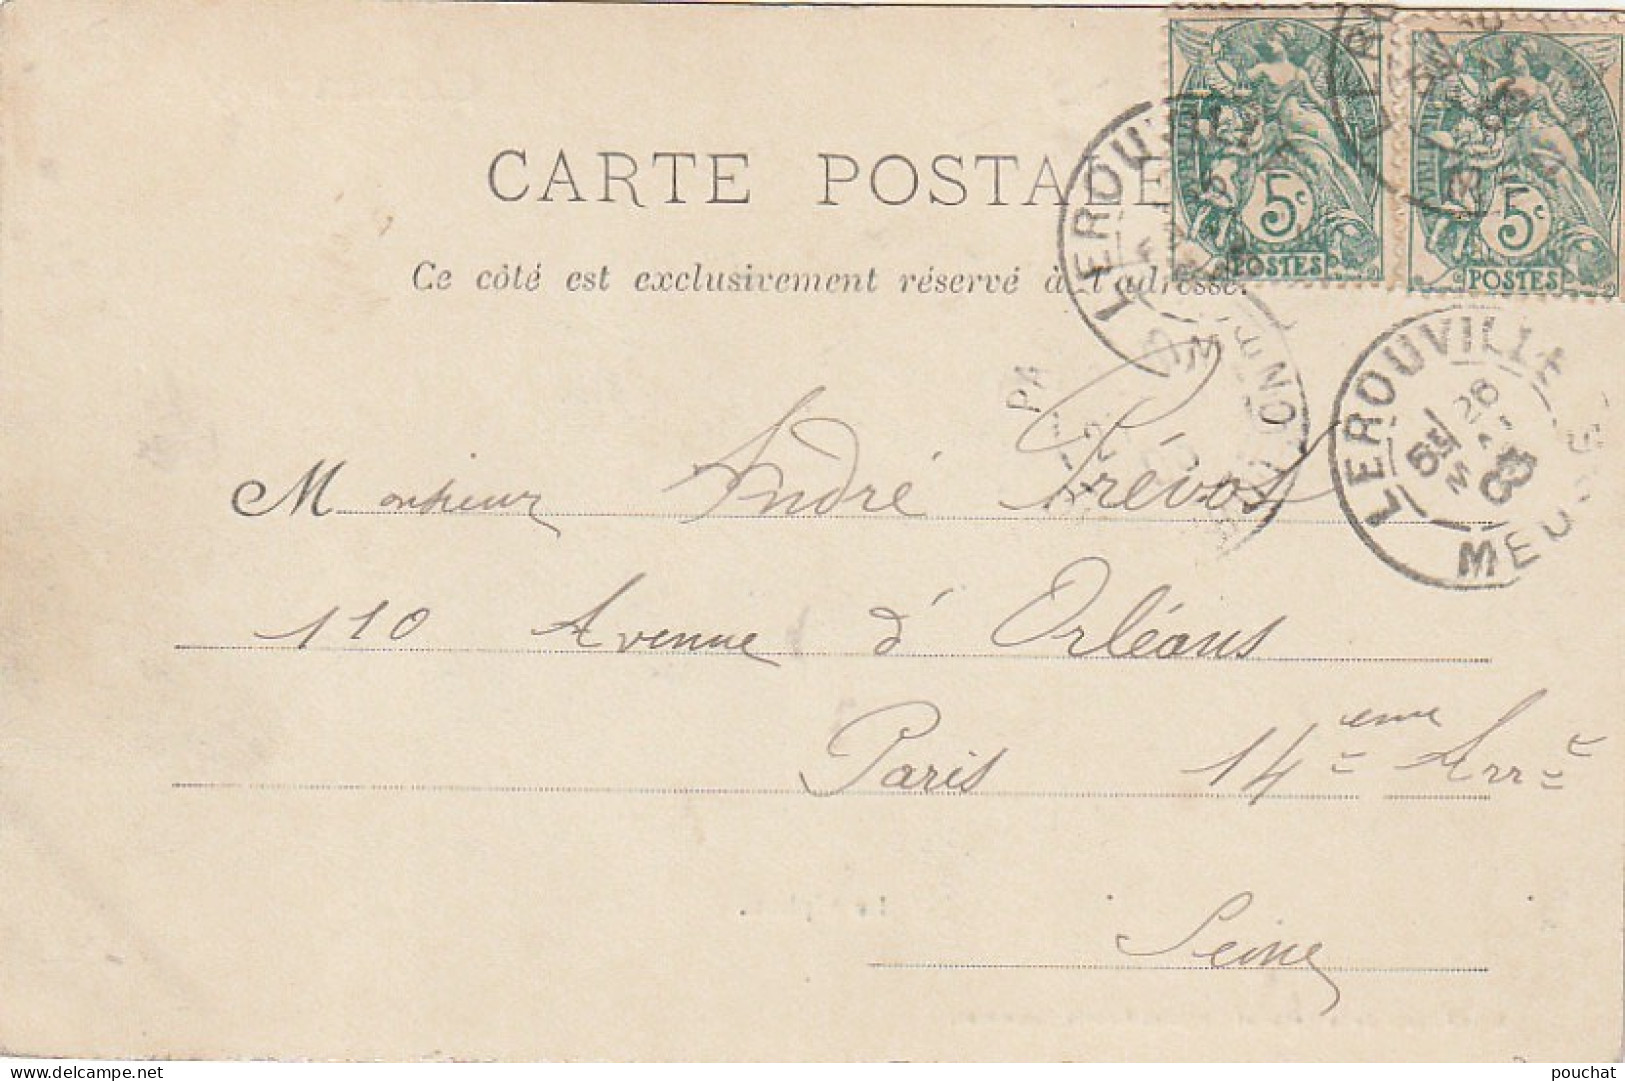 CARTE POSTALE
Ce côté est exclusivement réservé à l'adresse.
5c
POSTES
5c
POSTES
LEROUVILLE
MEUSE
Monsieur André Prévost
110 Avenue d'Orléans
Paris 14ème Arr
Seine
delcampe.net
pouchat